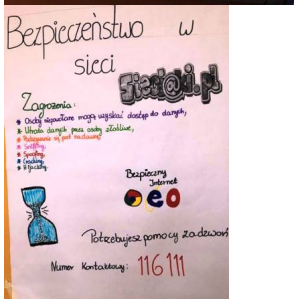 Bezpieczeństwo w
sieci
Sieci@ki.pl
Zagrożenia:
* Osoby niepowołane mogą uzyskać dostęp do danych,
* Utrata danych przez osoby złośliwe,
* Podszywanie się pod
* Sniffing,
* Spoofing,
* Cracking,
* Hijacking
Bezpieczny
Internet
Potrzebujesz pomocy zadzwoń
Numer Kontaktowy: 116 111